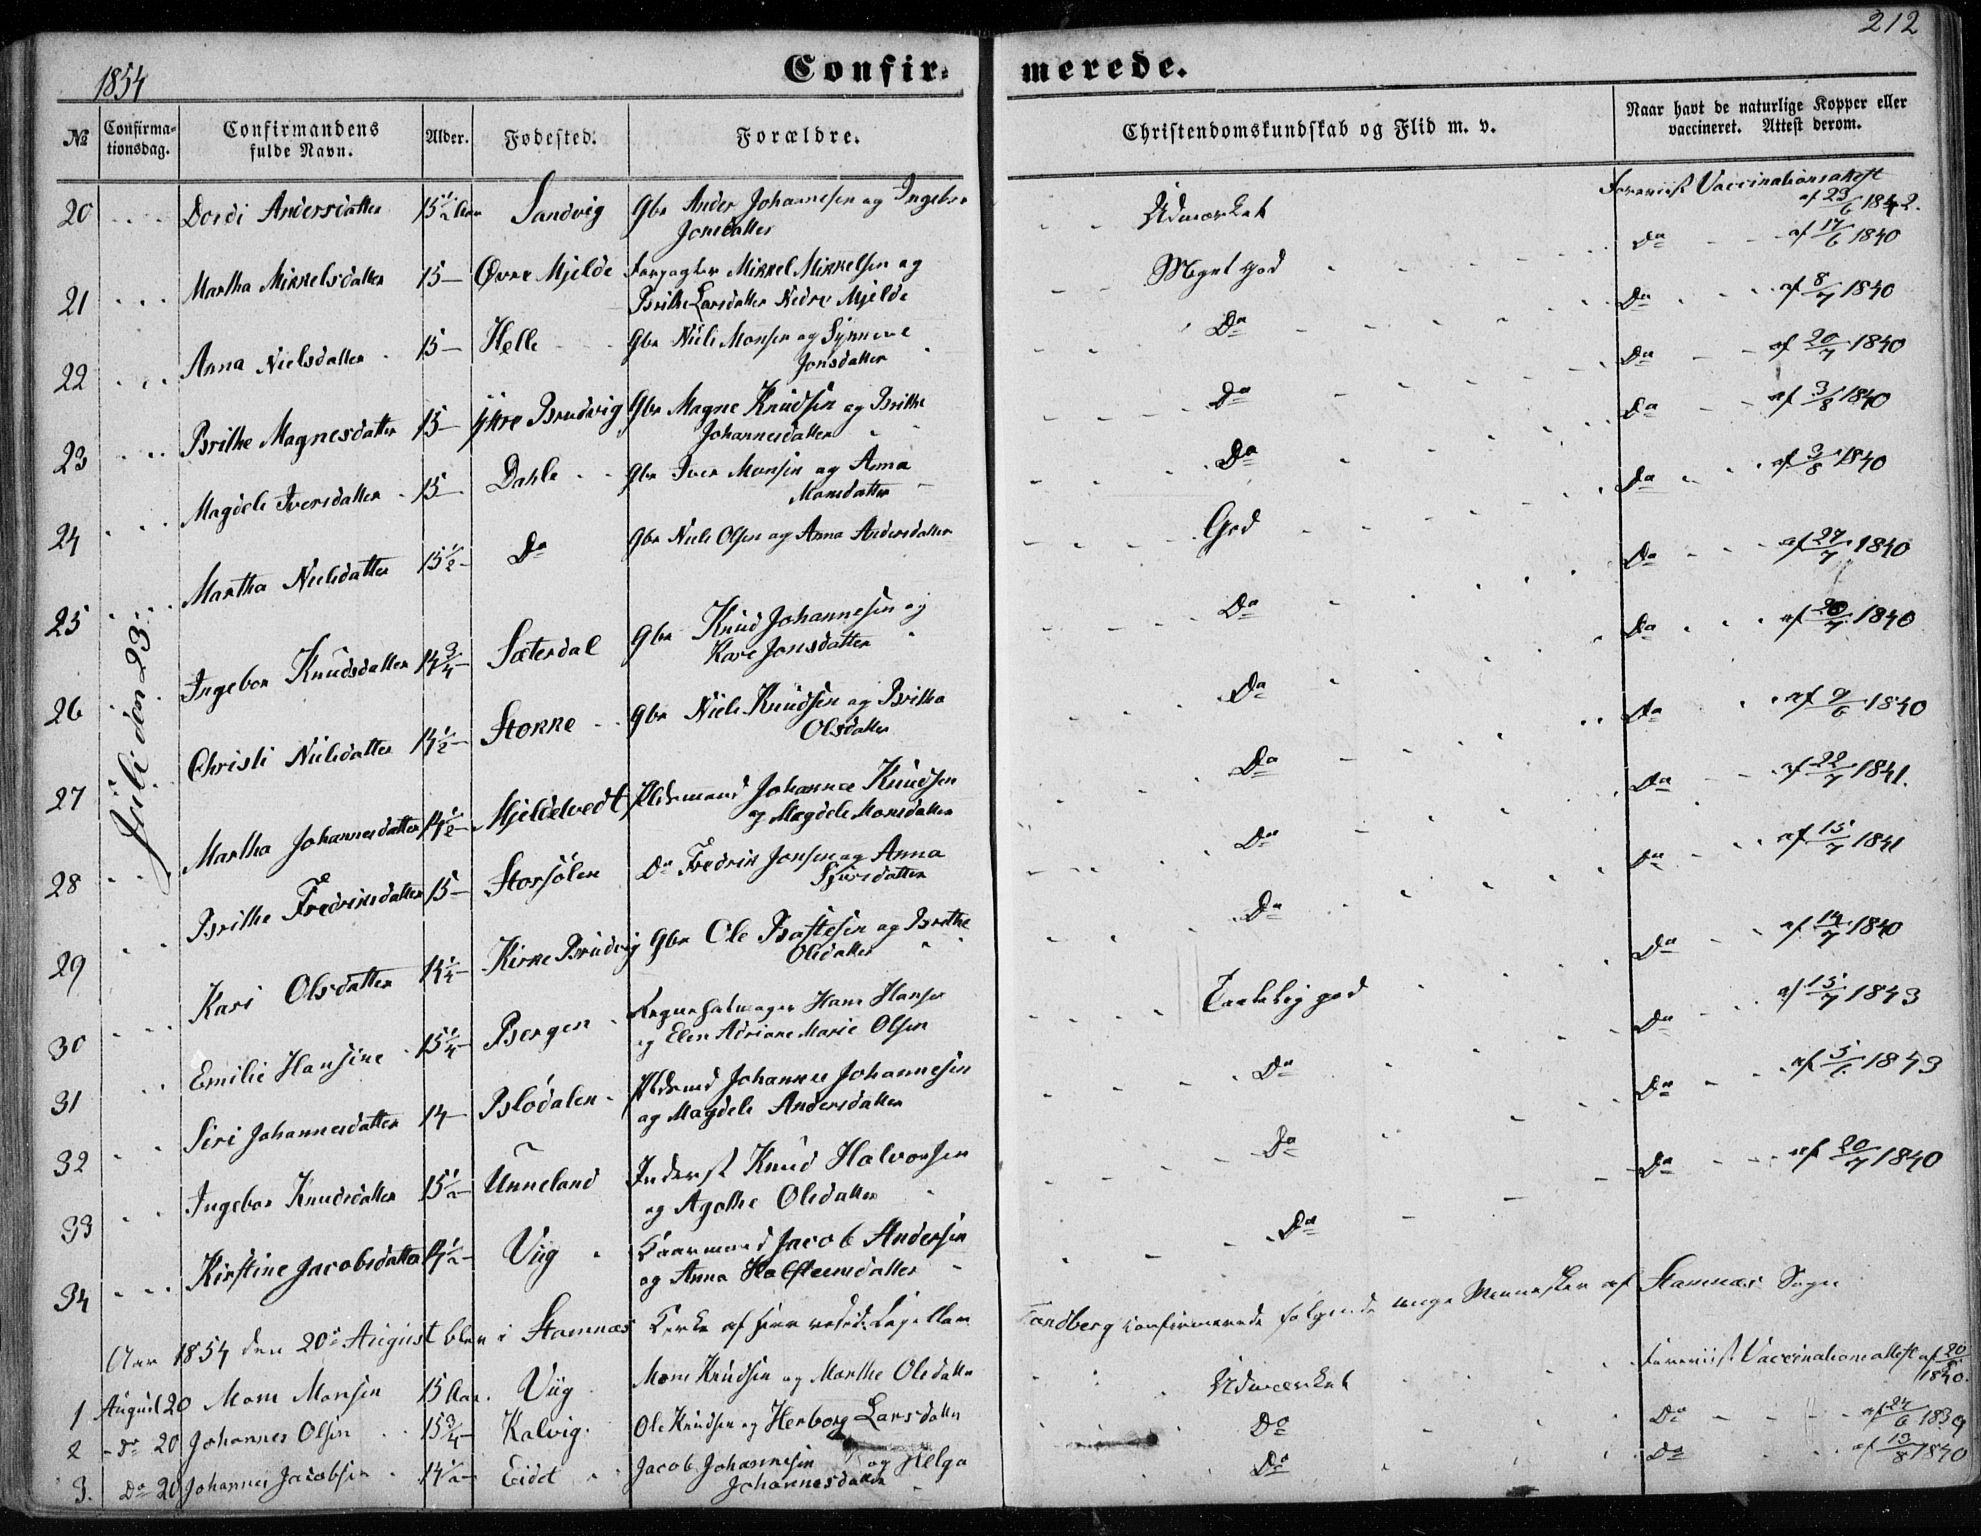 212
1854
Confirmerede.
№ Confirmationsdag. Confirmandens fulde Navn. Alder. Fødested. Forældre. Christendomskundskab og Flid m. v. Naar havt de naturlige Kopper eller vaccineret. Attest derom.
Juli den 23
20 Dordi Andersdatter 15½ Aar Sandvig Gbr Anders Johannesen og Ingebor Jonsdatter Udmærket Foreviist Vaccinationsattest af 23/6 1842.
21 Martha Mikkelsdatter 15 Øvre Mjelde Forpagter Mikkel Mikkelsen og Brithe Larsdatter Nedre Mjelde Meget god Do af 17/6 1840
22 Anna Nielsdatter 15 Helle Gbr Niels Monsen og Synneve Jonsdatter Do Do af 8/7 1840
23 Brithe Magnesdatter 15 Ytre Brudvig Gbr Magne Knudsen og Brithe Johannesdatter Do Do af 20/7 1840
24 Magdele Iversdatter 15 Dahle Gbr Iver Monsen og Anna Monsdatter Do Do af 3/8 1840
25 Martha Nielsdatter 15½ Do Gbr Niels Olsen og Anna Andersdatter God Do af 3/8 1840
26 Ingebor Knudsdatter 14¾ Sæterdal Gbr Knud Johannesen og Kari Jonsdatter Do Do af 27/7 1840
27 Christi Nielsdatter 14½ Storke Gbr Niels Knudsen og Britha Olsdatter Do Do af 20/7 1840
28 Martha Johannesdatter 14½ Mjeldetvedt Pldsmand Johannes Knudsen og Magdele Monsdatter Do Do af 9/6 1840
29 Brithe Fredriksdatter 15 Storsølen Do Fredrik Jonsen og Anna Sjursdatter Do Do af 22/7 1841.
Kari Olsdatter 14¼ Kirke Brudvig Gbr Ole Bastesen og Brithe Olsdatter Do Do af 15/7 1841
30 Emilie Hansine 15¼ Bergen Hans Hansen og Elen Adriane Marie Olsen Taalelig god Do af 14/7 1840
31 Siri Johannesdatter 14 Blödalen Pldsmd Johannes Johannesen og Magdele Andersdatter Do Do af 15/7 1843
32 Ingebor Knudsdatter 15½ Unneland Inderst Knud Halvorsen og Agathe Olsdatter Do Do af 5/ 1843
33 Kirstine Jacobsdatter 14½ Viig Huusmand Jacob Andersen og Anna Halsteensdatter Do Do af 20/7 1840
34
Aar 1854 den 20de August blev i Stamnæs Kirke af Herr resid. Capellan Landberg confirmerede følgende unge Mennesker af Stamnæs Sogn
1 August 20 Mons Monsen 15 Aar. Viig Mons Knudsen og Marthe Olsdatter Udmærket Foreviist Vaccinationsattest af 20/8 1840.
2 Do 20 Johannes Olsen 15¾ Kalvig. Ole Knudsen og Herborg Larsdatter Do Do af 24/6 1839
3. Do 20 Johannes Jacobsen 14½ Eidet Jacob Johannesen og Helga Johannesdatter Do Do af 13/8 1840